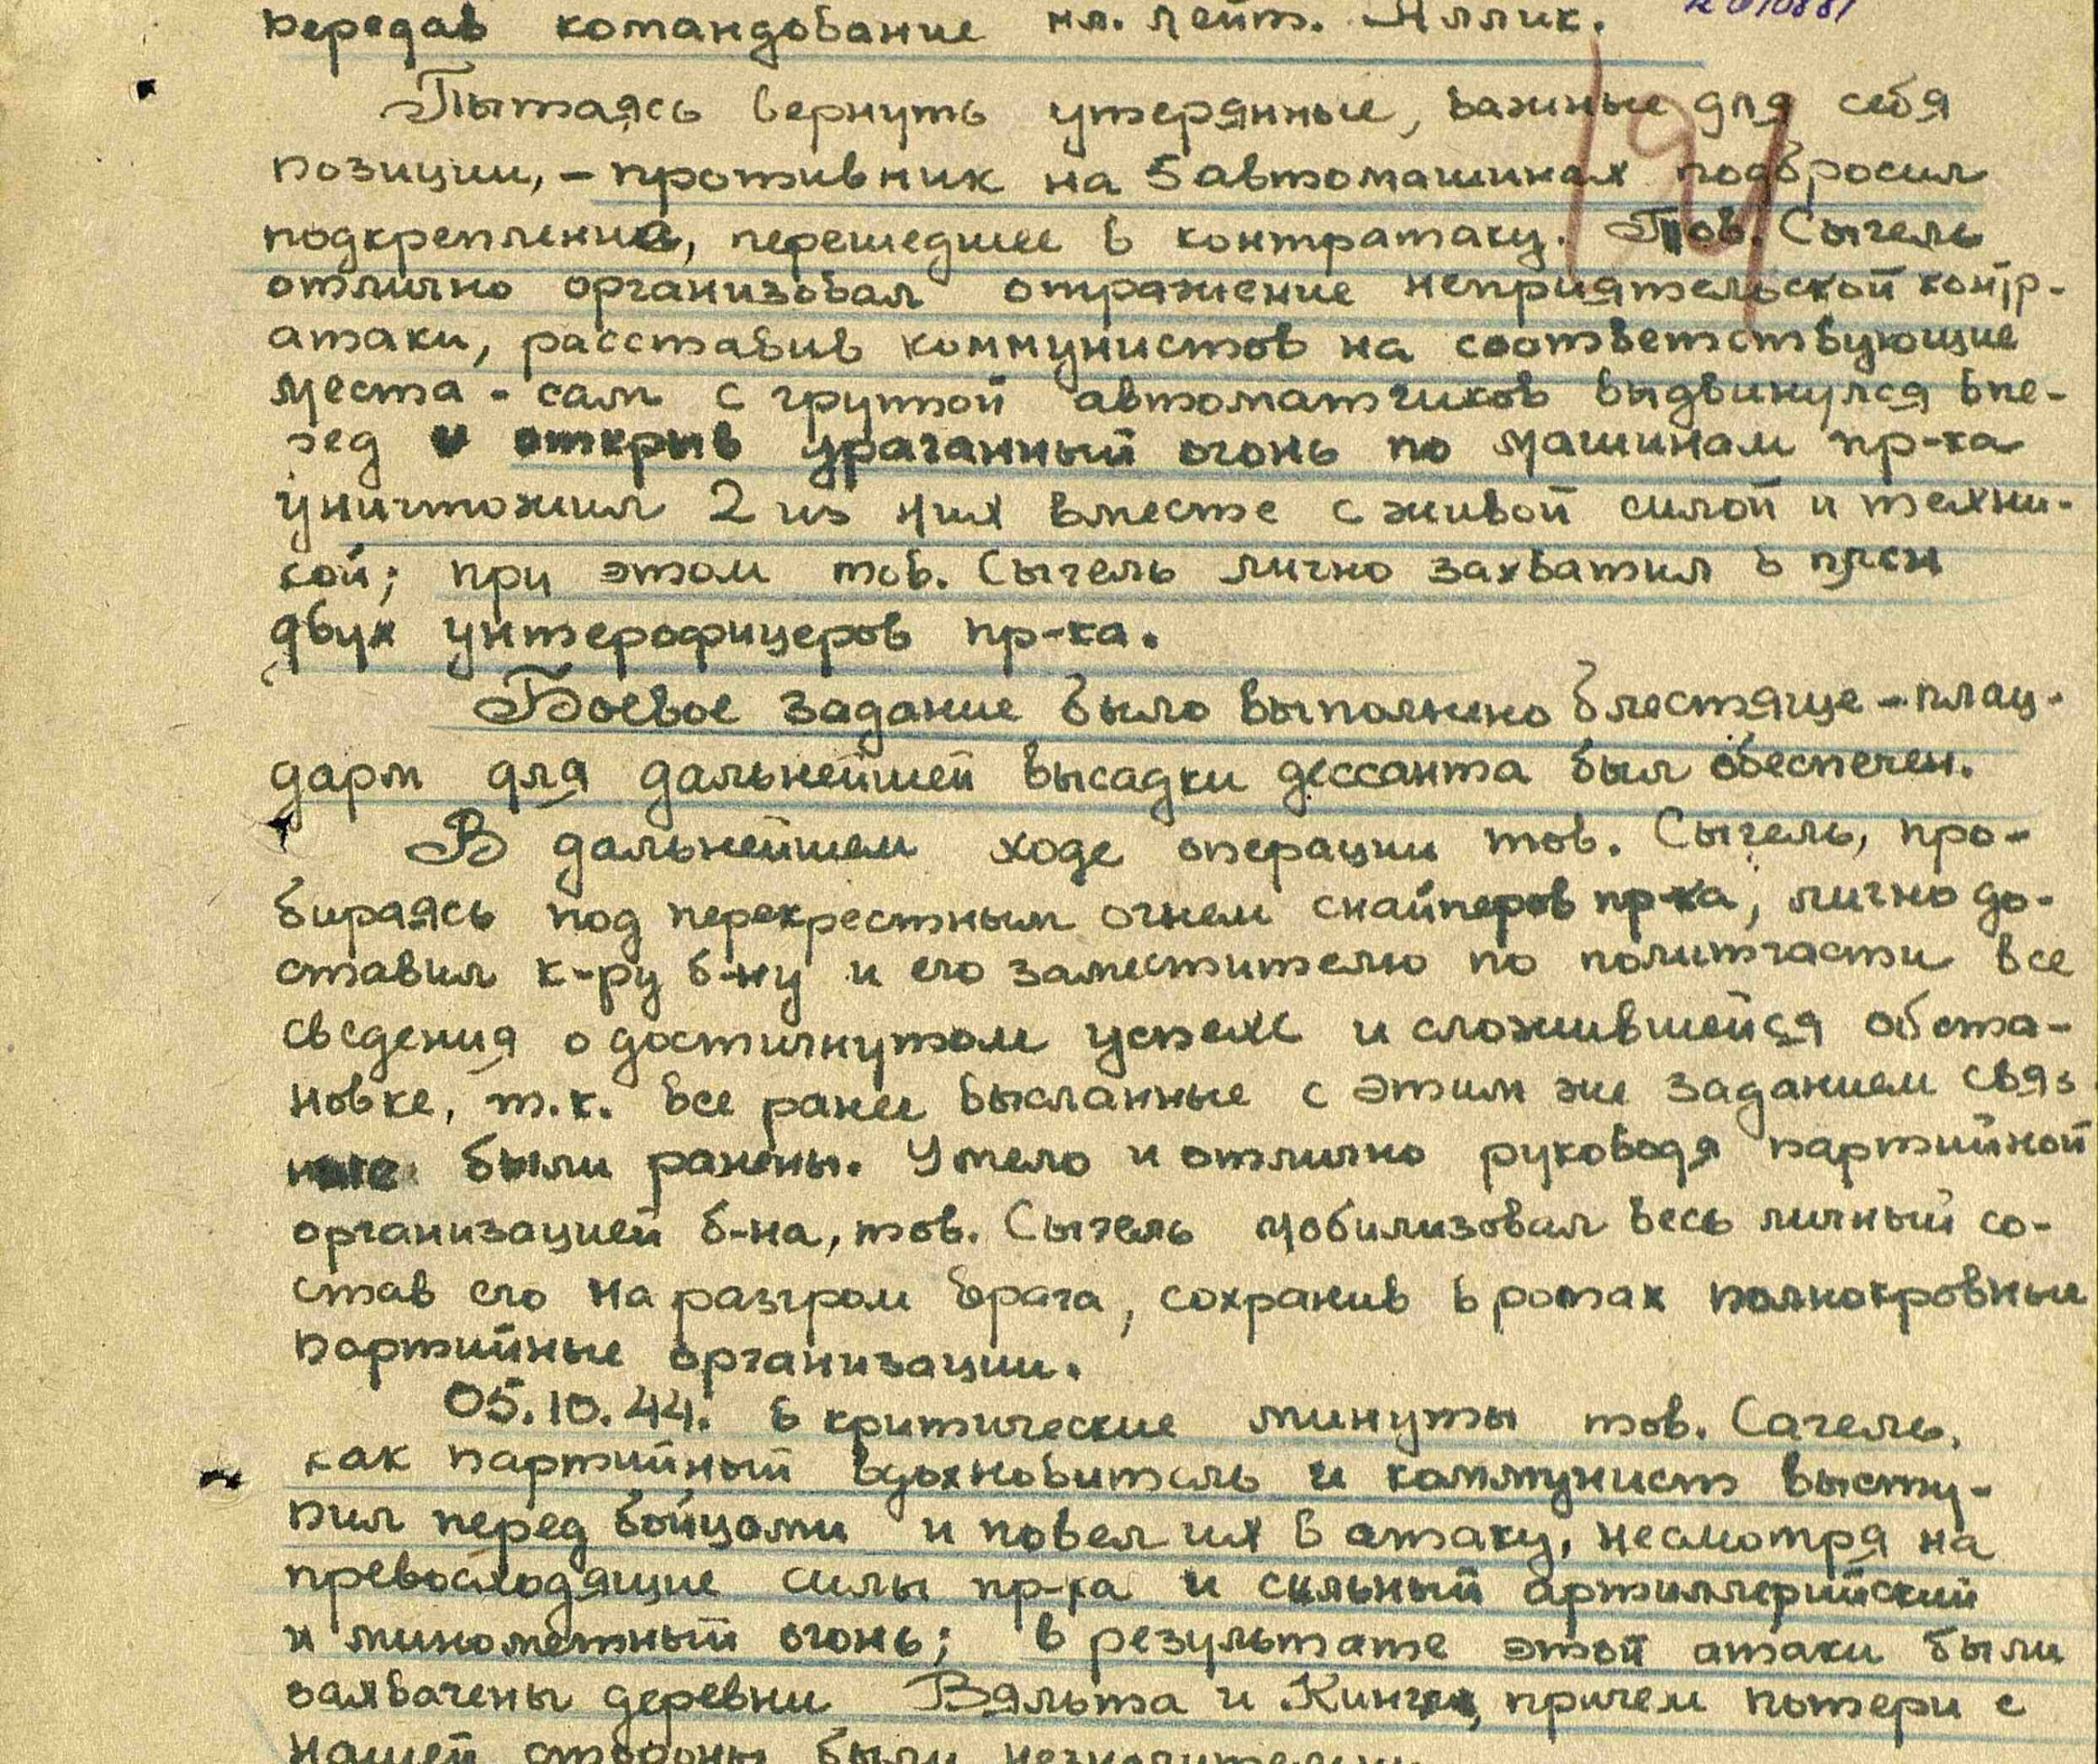 передав командование мл. лейт. Яллик.
Пытаясь вернуть утерянные, важные для себя
позиции, – противник на 5 автомашинах подбросил
подкрепление, перешедшее в контратаку. Тов. Сычель
отлично организовал отражение неприятельской контр-
атаки, расставив коммунистов на соответствующие
места - сам с группой автоматчиков выдвинулся впе-
ред и открыв ураганный огонь по машинам пр-ка
уничтожил 2 из них вместе с живой силой и техни-
кой; при этом тов. Сычель лично захватил в плен
двух унтерофицеров пр-ка.
Боевое задание было выполнено блестяще – плац-
дарм для дальнейшей высадки дессанта был обеспечен.
В дальнейшем ходе операции тов. Сычель, про-
бираясь под перекрестным огнем снайперов пр-ка, лично до-
ставил к-ру б-ну и его заместителю по политчасти все
сведения о достигнутом успехе и сложившейся обста-
новке, т.к. все ранее высланные с этим же заданием связ
ные были ранены. Умело и отлично руководя партийной
организацией б-на, тов. Сычель мобилизовал весь личный со-
став его на разгром врага, сохранив в ротах полнокровные
партийные организации.
05.10.44. в критические минуты тов. Сагель,
как партийный вдохновитель и коммунист высту-
пил перед бойцами и повел их в атаку, несмотря на
превосходящие силы пр-ка и сильный артиллерийский
и минометный огонь; в результате этой атаки были
захвачены деревни Вяльта и причем потери с
нашей стороны были
191